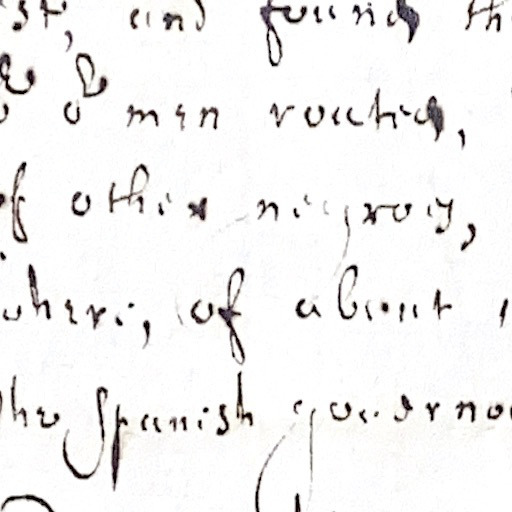 st, and found th
men routed,
of other negroes,
where, of about
the Spanish governo